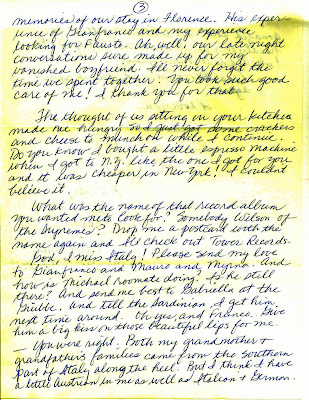 3
memories of our stay in Florence. His exper-
ience of Gianfranco and my experience
looking for Fausto. Ah well, our late night
conversations sure made up for my
vanished boyfriend. I'll never forget the
time we spent together. You took such good
care of me! I thank you for that.
The thought of us sitting in your kitchen
made me hungry so I just got some crackers
and cheese to munch on while I continue.
Do you know I bought a little espresso machine
when I got to N.Y. like the one I got for you
and it was cheaper in New York! I couldn't
believe it.
What was the name of that record album
you wanted me to look for? Somebody Watson of
the Supremes? Drop me a postcard with the
name again and I'll check out Tower Records.
God, I miss Italy! Please send my love
to Gianfranco and Mauro and Myrna. And
how is Michael roomate doing? Is he still
there? And send my best to Gabriella at the
and tell the Sardinian I get him
next time around. Oh yes, and Franco. Give
him a big kiss on those beautiful lips for me.
You were right. Both my grandmother &
grandfather's families came from the southern
part of Italy along the heel. But I think I have
a little Austrian in me as well as Italian & German.